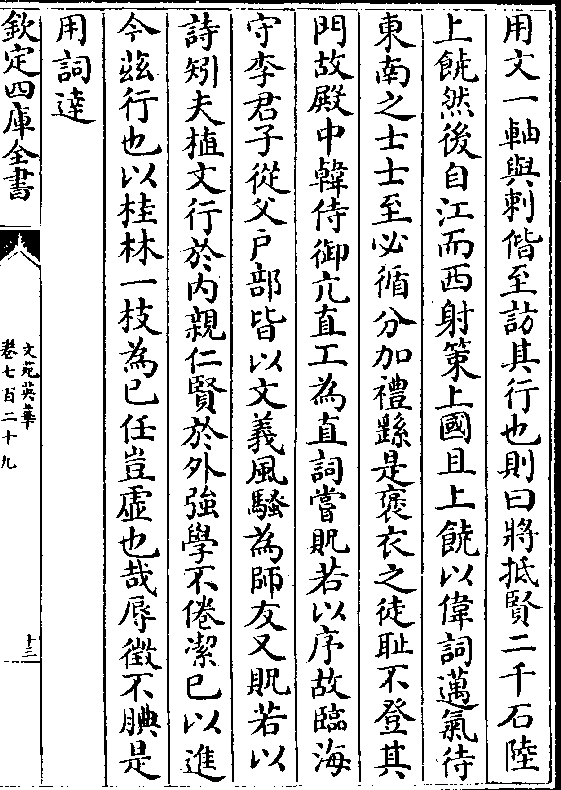 用文一軸與刺偕至訪其行也則曰將抵賢二千石陸
上饒然後自江而西射策上國且上饒以偉詞邁氣待
東南之士士至必循分加禮繇是褒衣之徒耻不登其
門故殿中韓侍御亢直工為直詞嘗貺若以序故臨海
守李君子從父戶部皆以文義風騷為師友又貺若以
詩矧夫植文行於内親仁賢於外強學不倦潔已以進
今兹行也以桂林一枝為已任豈虛也哉辱徵不腆是
用詞逹
欽定四庫全書
文苑英華
卷七百二十九
十三